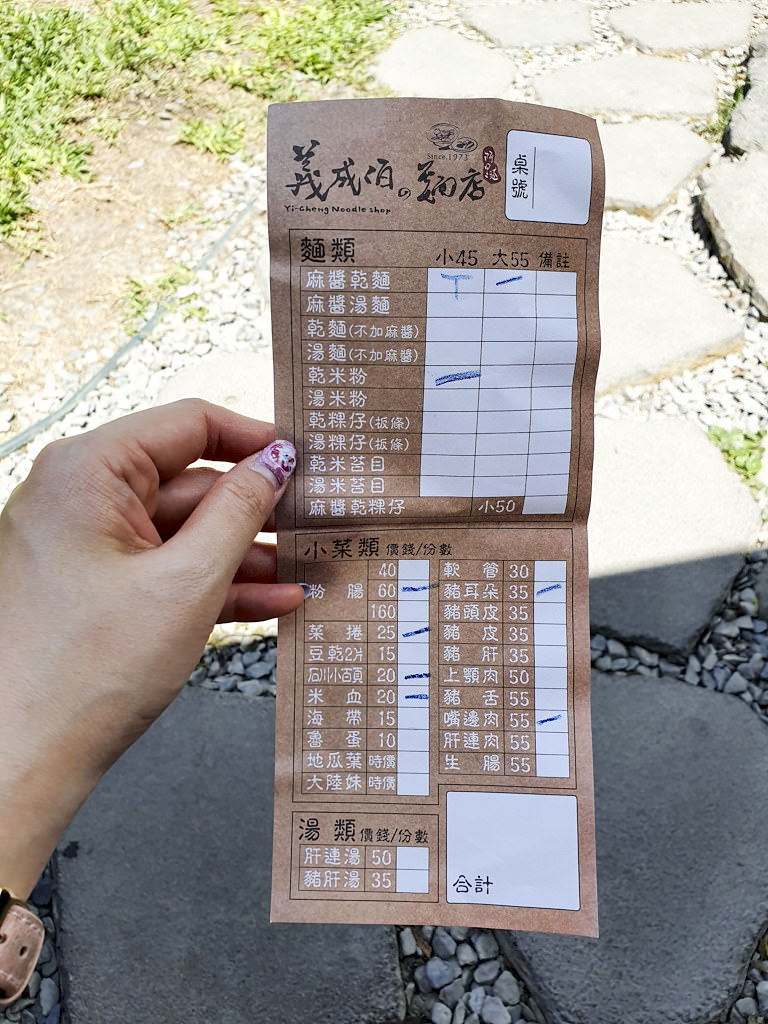 Since.1973
義成伯の麵店
Yi-Cheng Noodle shop
桌號
麵類 小45 大55 備註
麻醬乾麵 丅 一
麻醬湯麵
乾麵(不加麻醬)
湯麵(不加麻醬)
乾米粉
湯米粉
乾粿仔(粄條)
湯粿仔(粄條)
乾米苔目
湯米苔目
麻醬乾粿仔 小50
小菜類 價錢/份數
粉腸 40
60 一
160
菜捲 25 一
豆乾2片 15
20 一
米血 20 一
海帶 15
魯蛋 10
地瓜葉 時價
大陸妹 時價
軟管 30
豬耳朵 35 一
豬頭皮 35
豬皮 35
豬肝 35
上顎肉 50
豬舌 55
嘴邊肉 55 一
肝連肉 55
生腸 55
湯類 價錢/份數
肝連湯 50
豬肝湯 35
合計